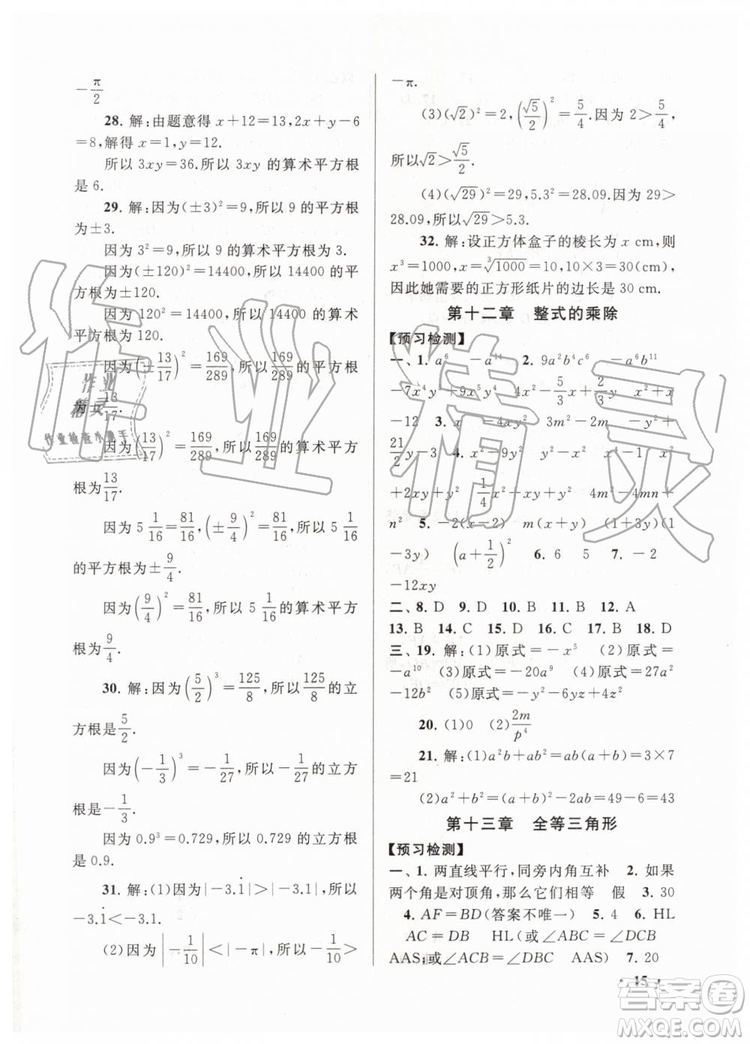 −π/2
28. 解:由题意得 x+12=13,2x+y−6
=8,解得 x=1,y=12.
所以 3xy=36. 所以 36 的算术平方根
是 6.
29. 解:因为(±3)²=9,所以 9 的平方根
为±3.
因为 3²=9,所以 9 的算术平方根为 3.
因为(±120)²=14400,所以 14400 的平
方根为±120.
因为 120²=14400,所以 14400 的算术
平方根为 120.
因为(±13/17)²=169/289,所以 169/289 的平方根
13/17.
因为(13/17)²=169/289,所以 169/289 的算术平方
根为 13/17.
因为 5 1/16=81/16,(±9/4)²=81/16,所以 5 1/16
的平方根为±9/4.
因为(9/4)²=81/16,所以 5 1/16 的算术平方
根为 9/4.
30. 解:因为(5/2)³=125/8,所以 125/8 的立
方根是 5/2.
因为(−1/3)³=−1/27,所以−1/27 的立方
根是−1/3.
因为 0.9³=0.729,所以 0.729 的立方根
是 0.9.
31. 解:(1)因为|−3.1̇|>|−3.1|,所以
−3.1̇<−3.1.
(2)因为|−1/10|<|−π|,所以−1/10>
−π.
(3)(√2)²=2,(√5/2)²=5/4. 因为 2>5/4,
所以√2>√5/2.
(4)(√29)²=29,5.3²=28.09. 因为 29>
28.09,所以√29>5.3.
32. 解:设正方体盒子的棱长为 x cm,则
x³=1000,x=³√1000=10,10×3=30(cm).
因此她需要的正方形纸片的边长是 30 cm.
第十二章 整式的乘除
【预习检测】
一、1. a⁶ a⁵ 2. 9a²b²c⁶ −a⁶b¹¹
−12 3. x 4. 3m²−5m−2
n² 5. −2(x−2) m(x+y) (1+x)(1
−3x) (a+1/2)² 6. 5 7. −2
−12xy
二、8. D 9. D 10. B 11. B 12. A
13. B 14. C 15. D 16. B 17. B 18. D
三、19. 解:(1)原式=−x⁵ (2)原式=
−10a⁶ (3)原式=0 (4)原式=27a²
−12b² (5)原式=−y²
20. (1)0 (2)2m/p⁴
21. 解:(1)a²b+ab²=ab(a+b)=3×7
=21
(2)a²+b²=(a+b)²−2ab=49−6=43
第十三章 全等三角形
【预习检测】
一、1. 两直线平行,同旁内角互补 2. 如果
两个角是对顶角,那么它们相等 假 3. 30
4. AF=BD(答案不唯一) 5. 4 6. HL
AC=DB HL(或∠ABC=∠DCB
AAS;或∠ACB=∠DBC AAS) 7. 20
· 15 ·
作业精灵
作业
精灵
作业检查小帮手
答案圈
MXQE.COM